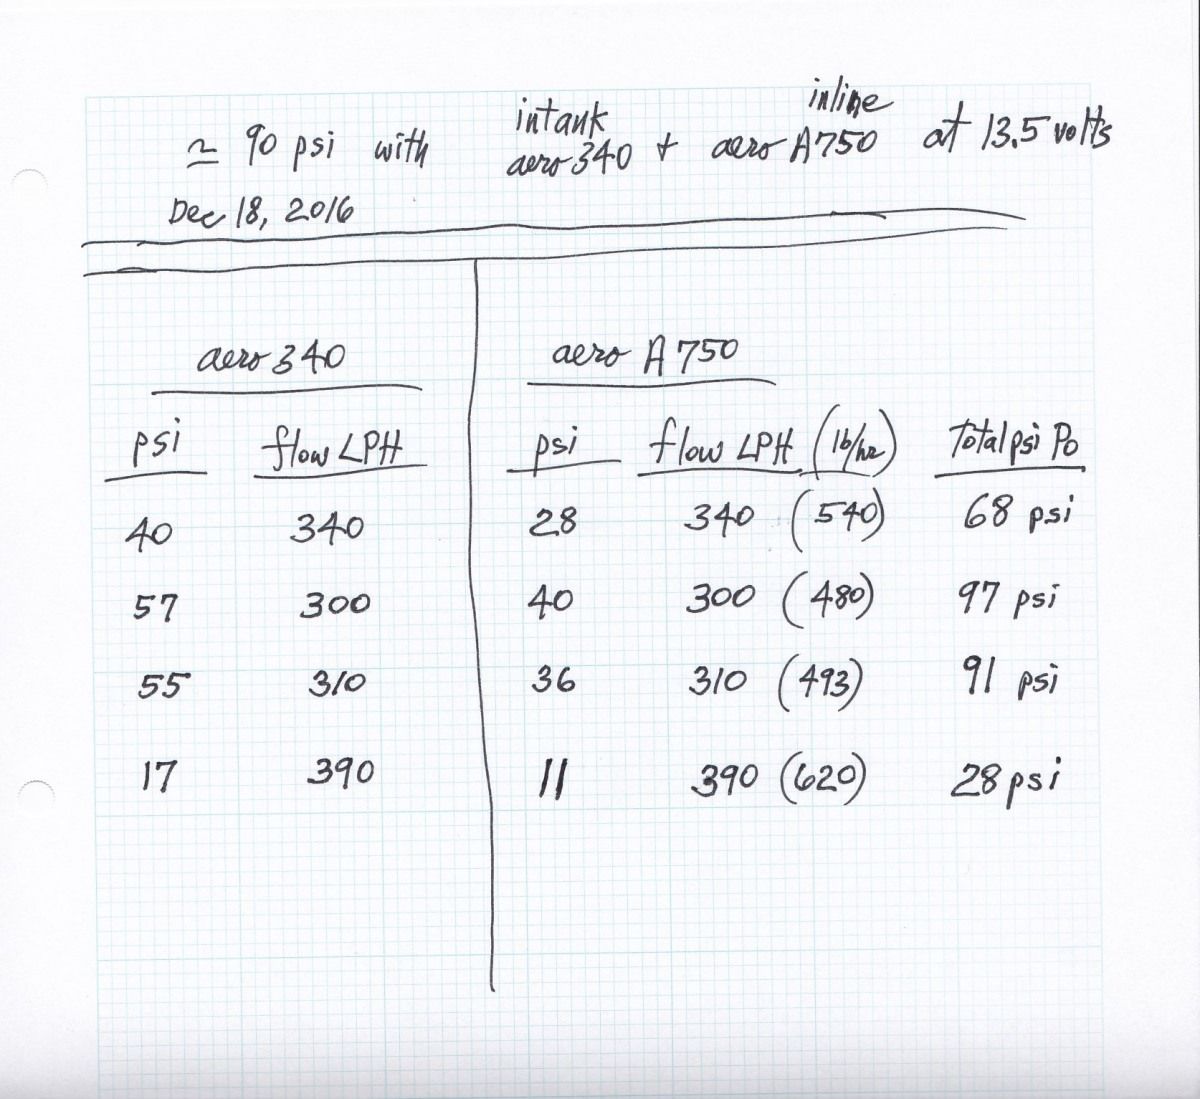 ≃ 90 psi with intank aero 340 + inline aero A750 at 13.5 volts
Dec 18, 2016
aero 340 aero A750
psi flow LPH psi flow LPH (lb/hr) Total psi Po
40 340 28 340 (540) 68 psi
57 300 40 300 (480) 97 psi
55 310 36 310 (493) 91 psi
17 390 11 390 (620) 28 psi